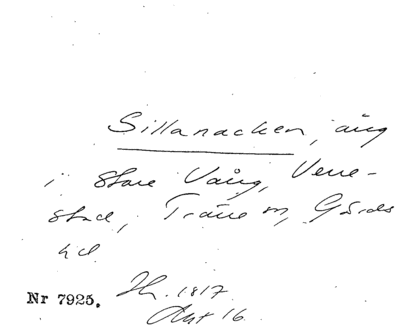 Sillanacken, äng
i Store Vång, Vene-
stad, Träne sn, Gärds
hd
Nr 7925. Th. 1817
Akt 16